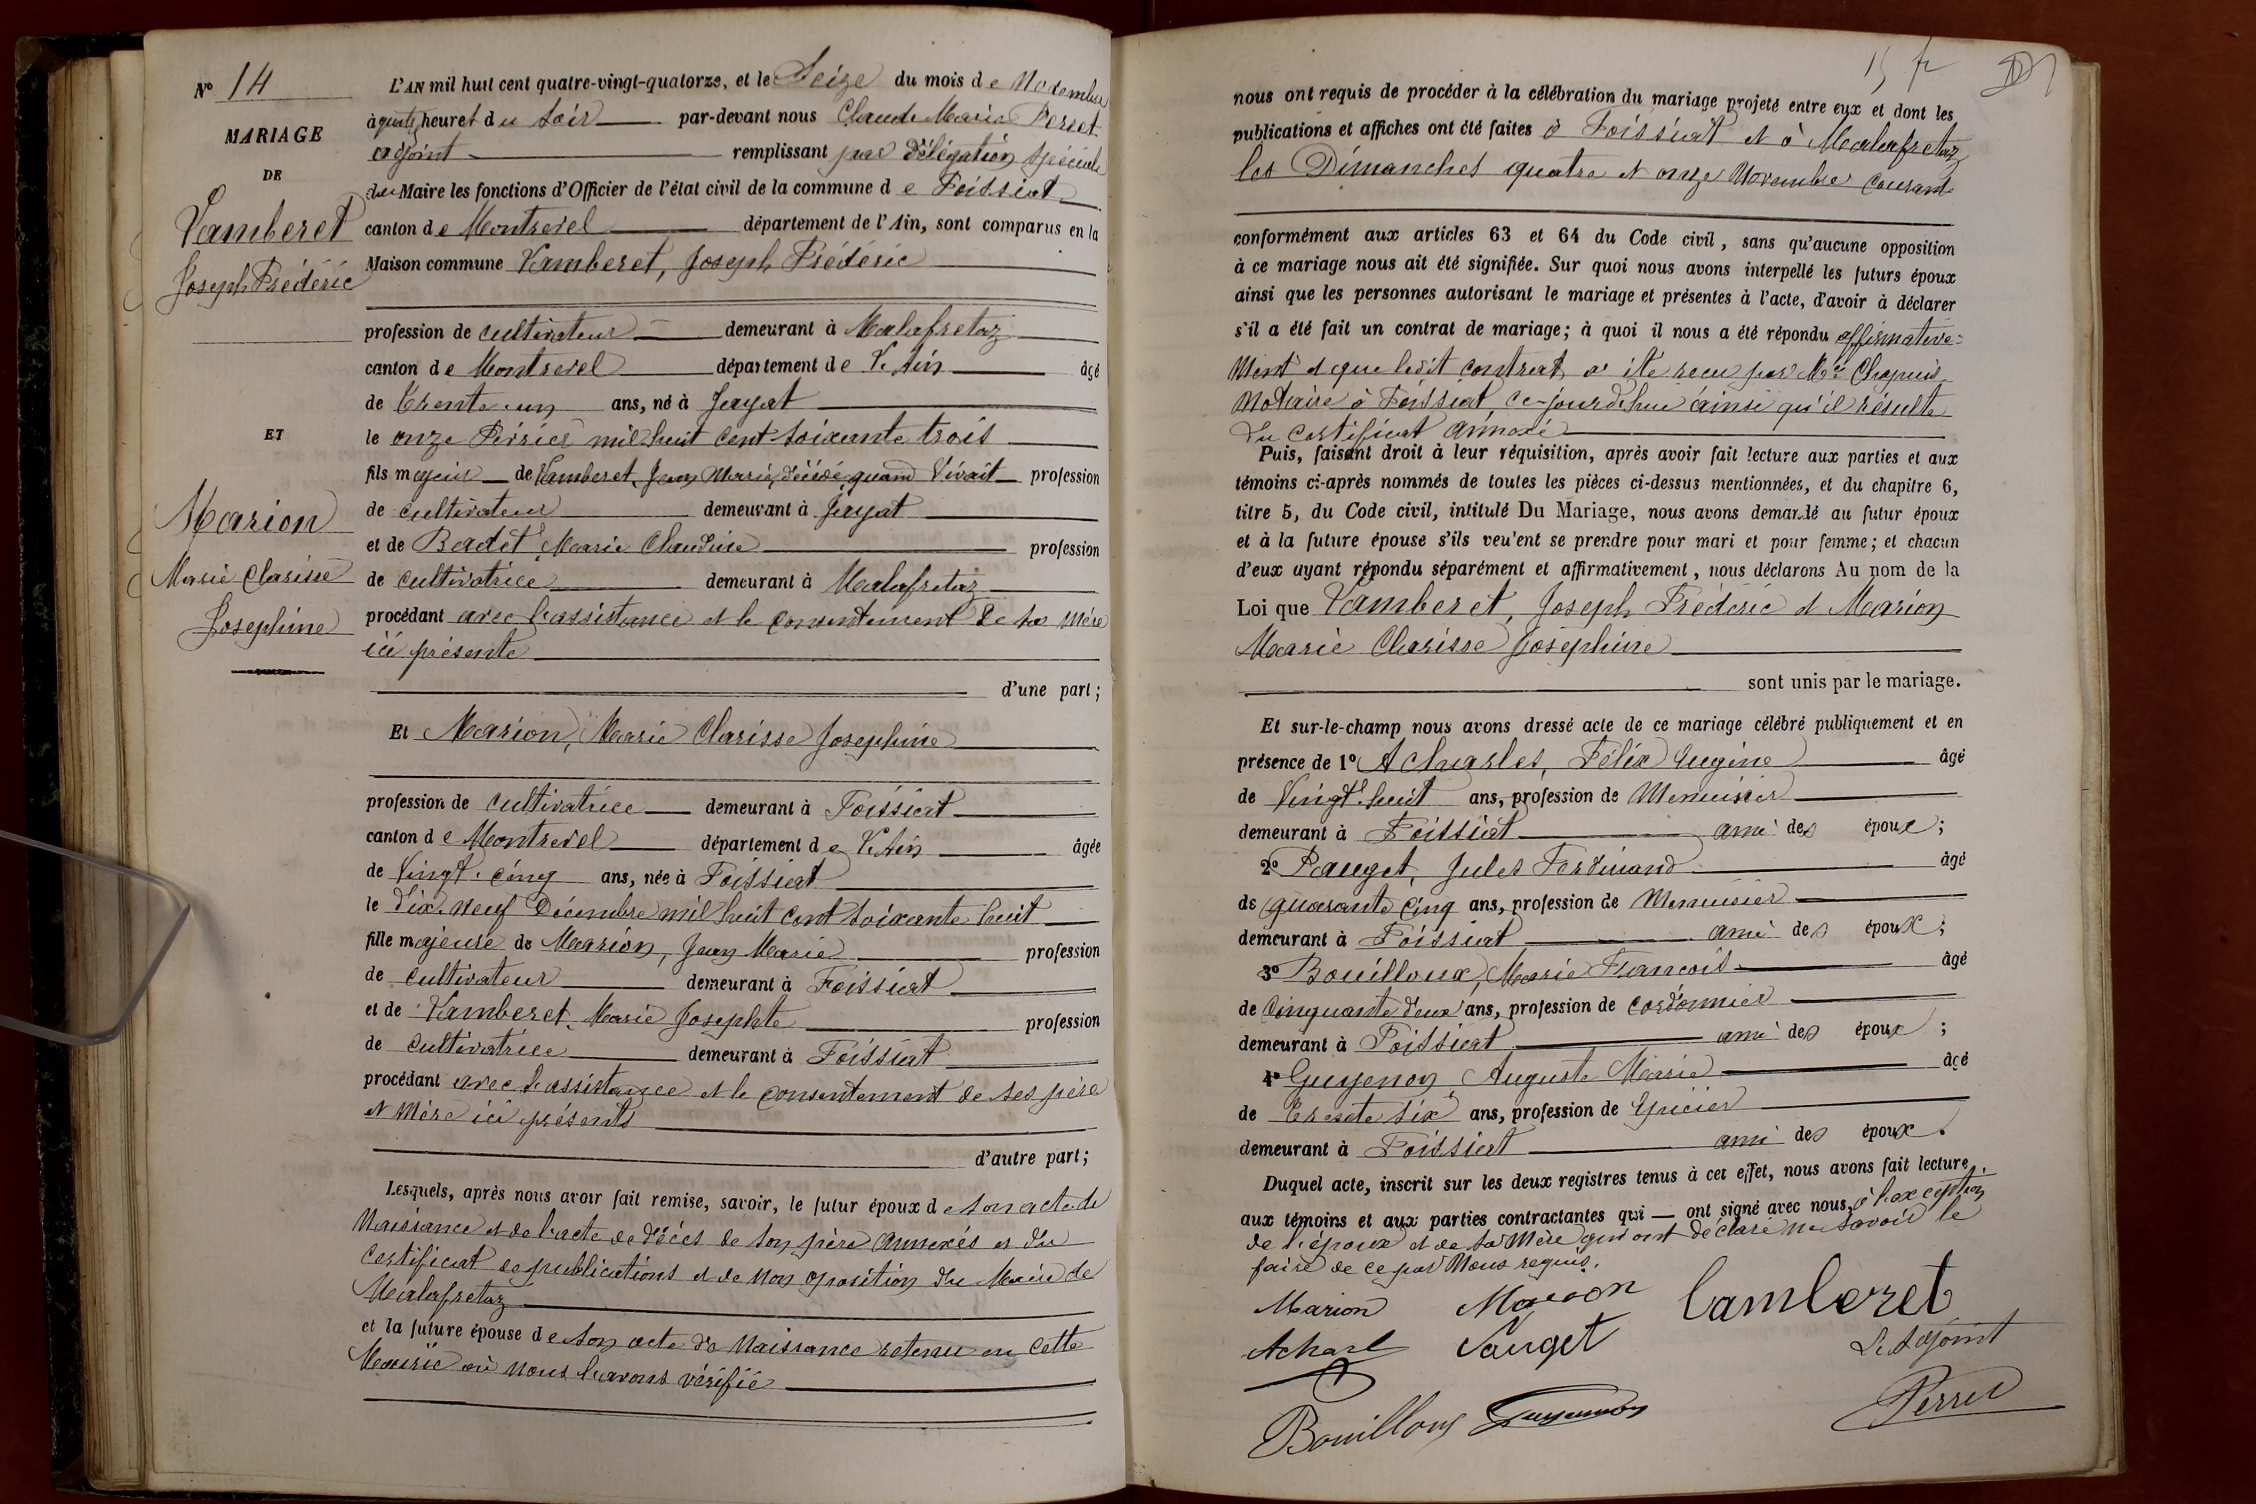 Nº 14
MARIAGE
DE
Vamberet
Joseph Frédéric
ET
Marion
Marie Clarisse
Josephine
L'AN mil huit cent quatre-vingt-quatorze, et le Seize du mois de Novembre
à quatre heures du soir par-devant nous Claude Marie Perret
adjoint remplissant par délégation spéciale
du Maire les fonctions d'Officier de l'état civil de la commune de Foissiat
canton de Montrevel département de l'Ain, sont comparus en la
Maison commune Vamberet, Joseph Frédéric
profession de cultivateur demeurant à Malafretaz
canton de Montrevel département de L'Ain âgé
de Trente-un ans, né à Jayat
le onze Février mil huit cent soixante trois
fils majeur de Vamberet, Jean Marie, décédé, quand vivait profession
de cultivateur demeurant à Jayat
et de Badet Marie Claudine profession
de cultivatrice demeurant à Malafretaz
procédant avec l'assistance et le consentement de sa mère
ici présente
d'une part;
Et Marion, Marie Clarisse Josephine
profession de cultivatrice demeurant à Foissiat
canton de Montrevel département de L'Ain âgée
de Vingt-cinq ans, née à Foissiat
le dix-neuf Décembre mil huit cent soixante huit
fille majeure de Marion, Jean Marie profession
de cultivateur demeurant à Foissiat
et de Vamberet, Marie Josephte profession
de cultivatrice demeurant à Foissiat
procédant avec l'assistance et le consentement de ses père
et mère ici présents
d'autre part;
Lesquels, après nous avoir fait remise, savoir, le futur époux de son acte de
Naissance et de l'acte de décès de son père annexés et du
Certificat de publications et de non oposition du Maire de
Malafretaz
et la future épouse de son acte de Naissance retenu en cette
Mairie où nous l'avons vérifié
nous ont requis de procéder à la célébration du mariage projeté entre eux et dont les
publications et affiches ont été faites à Foissiat et à Malafretaz
les Dimanches quatre et onze Novembre courant
conformément aux articles 63 et 64 du Code civil, sans qu'aucune opposition
à ce mariage nous ait été signifiée. Sur quoi nous avons interpellé les futurs époux
ainsi que les personnes autorisant le mariage et présentes à l'acte, d'avoir à déclarer
s'il a été fait un contrat de mariage; à quoi il nous a été répondu affirmative=
ment et que ledit contrat a été reçu par Me Chapuis
Notaire à Foissiat ce-jourd'hui ainsi qu'il résulte
du certificat annexé
Puis, faisant droit à leur réquisition, après avoir fait lecture aux parties et aux
témoins ci-après nommés de toutes les pièces ci-dessus mentionnées, et du chapitre 6,
titre 5, du Code civil, intitulé Du Mariage, nous avons demandé au futur époux
et à la future épouse s'ils veulent se prendre pour mari et pour femme; et chacun
d'eux ayant répondu séparément et affirmativement, nous déclarons Au nom de la
Loi que Vamberet, Joseph Frédéric et Marion
Marie Clarisse Josephine
sont unis par le mariage.
Et sur-le-champ nous avons dressé acte de ce mariage célébré publiquement et en
présence de 1º Acharles, Félix Eugène âgé
de Vingt-huit ans, profession de Menuisier
demeurant à Foissiat ami des époux;
2º Pauget, Jules Ferdinand âgé
de quarante cinq ans, profession de Menuisier
demeurant à Foissiat ami des époux;
3º Bouilloux, Marie François âgé
de Cinquante deux ans, profession de cordonnier
demeurant à Foissiat ami des époux;
4º Guyenon, Auguste Marie âgé
de Trente six ans, profession de Epicier
demeurant à Foissiat ami des époux.
Duquel acte, inscrit sur les deux registres tenus à cet effet, nous avons fait lecture
aux témoins et aux parties contractantes qui ont signé avec nous, à l'exception
de l'époux et de sa mère qui ont déclaré ne savoir le
faire de ce par Nous requis.
Marion Marion Vamberet
Acharl Pauget Le Adjoint
Bouilloux Guyennon Perret